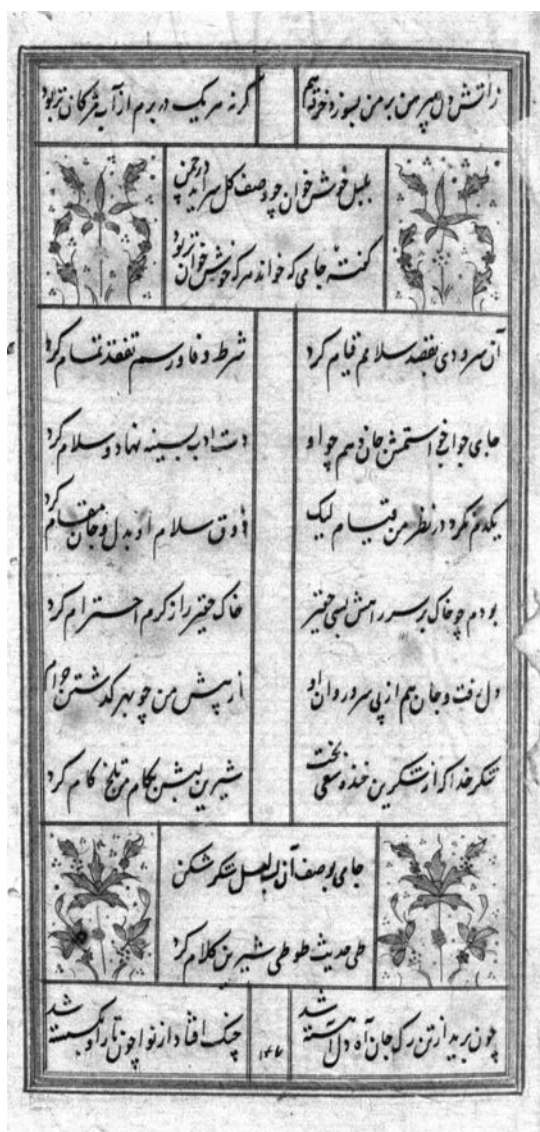 زاتش دل پیرهن بر من بسوزد خرقه هم
گر نه هر یک دم برم از آب مژگان تر بود
بلبل خوش خوان چو وصف گل سراید در چمن
گفته جامی که خواند هر که خوش خوان تر بود
آن سرو دی بقصد سلامم قیام کرد
شرط وفا و رسم تفقد تمام کرد
جای جواب استمش جان دهم چو او
دست ادب بسینه نهاد و سلام کرد
یکدم نکرد در نظر من قیام لیک
ذوق سلام او بدل و جان مقام کرد
بودم چو خاک بر سر راهش بسی حقیر
خاک حقیر را ز کرم احترام کرد
دل رفت و جان هم از پی سرو روان او
از پیش من چو بهر گذشتن خرام کرد
شکر خدا که از شکرین خنده سعی بخت
شیرین لبش بکام من تلخ کام کرد
جامی بوصف آن لب لعل شکر شکن
طی حدیث طوطی شیرین کلام کرد
چون برید از تن رگ جان آه دل آهسته شد
چنگ افتاد از نوا چون تار او گسسته شد